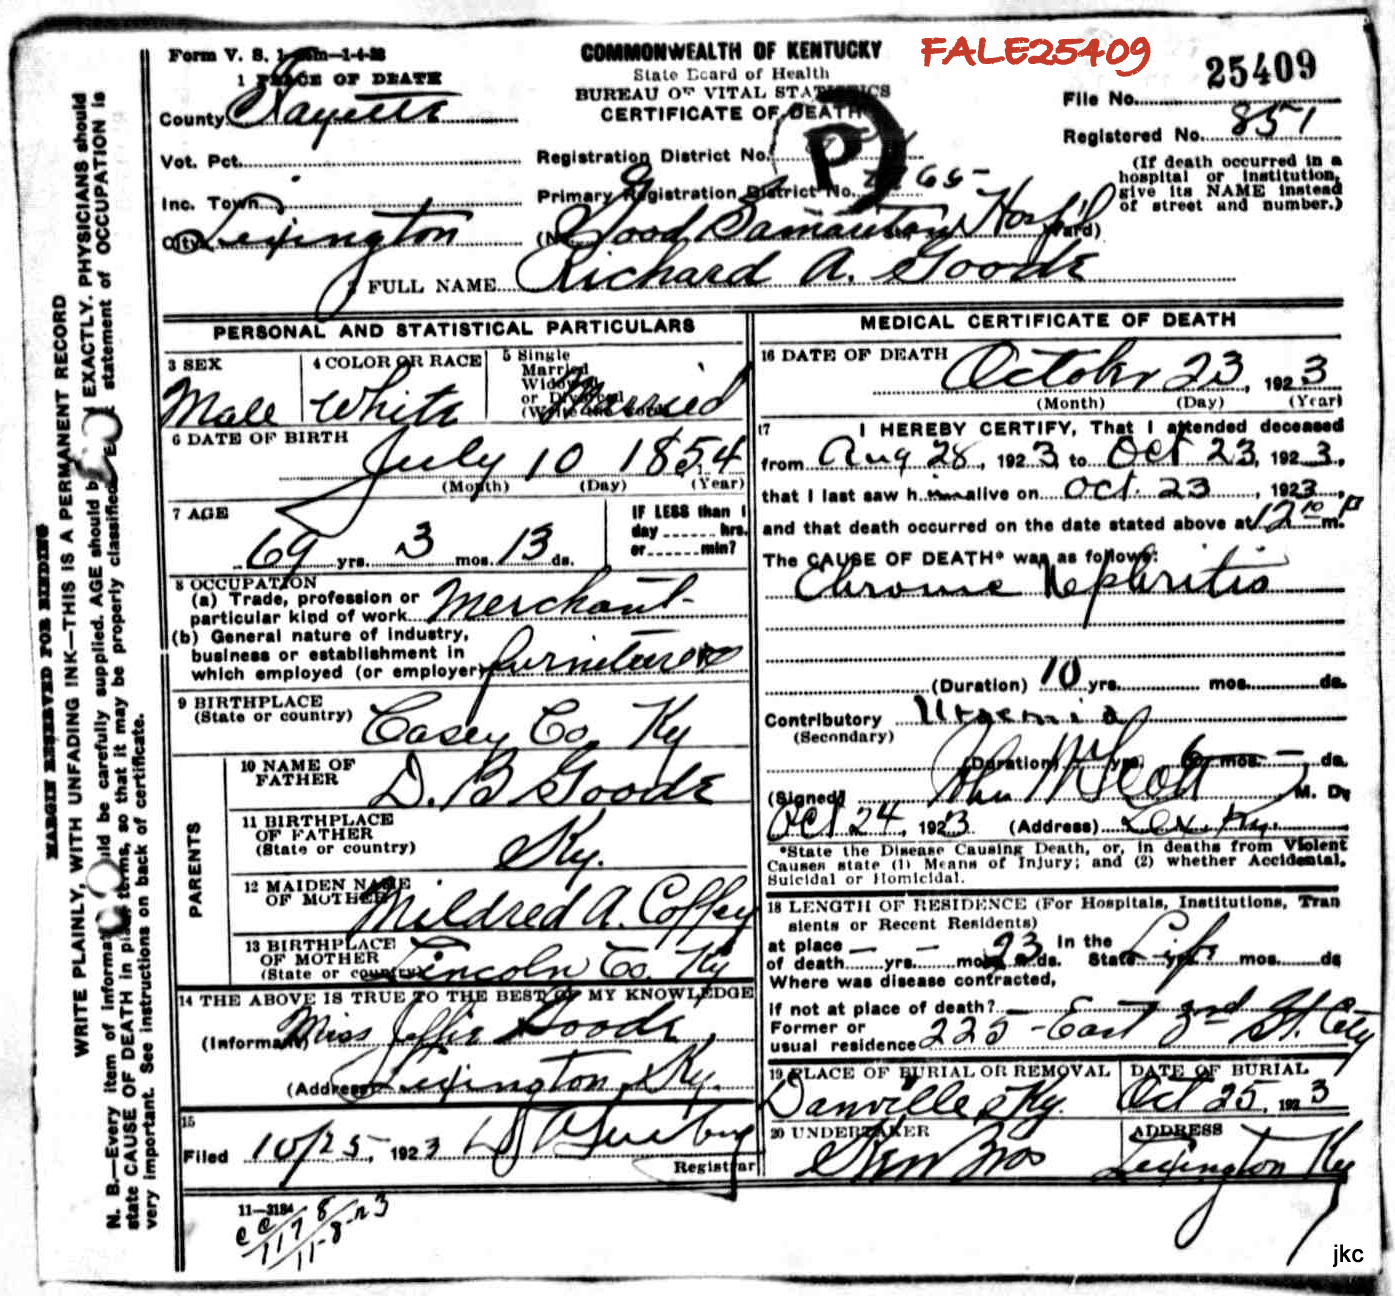 Form V. S. 1
COMMONWEALTH OF KENTUCKY
FALE25409
25409
State Board of Health
BUREAU OF VITAL STATISTICS
CERTIFICATE OF DEATH
1 PLACE OF DEATH
County Fayette
File No.
Registered No. 851
Vot. Pct.
Registration District No.
P
Primary Registration District No. 65
(If death occurred in a hospital or institution, give its NAME instead of street and number.)
Inc. Town
City Lexington
(No. Good Samaritan Hosp'l Ward)
2 FULL NAME Richard A. Goode
PERSONAL AND STATISTICAL PARTICULARS
3 SEX
Male
4 COLOR OR RACE
White
5 Single
Married
Widowed
or Divorced
(Write the word)
Married
6 DATE OF BIRTH
July 10 1854
(Month) (Day) (Year)
7 AGE
69 yrs. 3 mos. 13 ds.
IF LESS than 1
day ...... hrs.
or ...... min?
8 OCCUPATION
(a) Trade, profession or
particular kind of work Merchant
(b) General nature of industry,
business or establishment in
which employed (or employer) furniture
9 BIRTHPLACE
(State or country)
Casey Co Ky
PARENTS
10 NAME OF
FATHER
D. B Goode
11 BIRTHPLACE
OF FATHER
(State or country)
Ky.
12 MAIDEN NAME
OF MOTHER
Mildred A. Coffey
13 BIRTHPLACE
OF MOTHER
(State or country)
Lincoln Co. Ky
14 THE ABOVE IS TRUE TO THE BEST OF MY KNOWLEDGE
(Informant) Miss Goode
(Address) Lexington Ky.
15
Filed 10/25, 1923
Registrar
11-3184
11-8-23
MEDICAL CERTIFICATE OF DEATH
16 DATE OF DEATH
October 23, 1923
(Month) (Day) (Year)
17 I HEREBY CERTIFY, That I attended deceased
from Aug 28, 1923, to Oct 23, 1923,
that I last saw him alive on Oct. 23, 1923,
and that death occurred on the date stated above at 12 10 P m.
The CAUSE OF DEATH* was as follows:
Chronic Nephritis
(Duration) 10 yrs. mos. ds.
Contributory Uraemia
(Secondary)
(Duration) yrs. 6 mos. — ds.
(Signed) John W Scott M. D.
Oct 24, 1923 (Address) Lex. Ky.
*State the Disease Causing Death, or, in deaths from Violent
Causes state (1) Means of Injury; and (2) whether Accidental,
Suicidal or Homicidal.
18 LENGTH OF RESIDENCE (For Hospitals, Institutions, Tran
sients or Recent Residents)
at place
of death — yrs. — mos. 23 ds. In the State Life yrs. mos. ds
Where was disease contracted,
if not at place of death? —
Former or
usual residence 225 - East 3rd St. City
19 PLACE OF BURIAL OR REMOVAL
Danville Ky.
DATE OF BURIAL
Oct 25, 1923
20 UNDERTAKER
Kerr Bros
ADDRESS
Lexington Ky
jkc
MARGIN RESERVED FOR BINDING
WRITE PLAINLY, WITH UNFADING INK—THIS IS A PERMANENT RECORD
N. B.—Every item of information should be carefully supplied. AGE should be EXACTLY. PHYSICIANS should
state CAUSE OF DEATH in plain terms, so that it may be properly classified. Exact statement of OCCUPATION is
very important. See instructions on back of certificate.